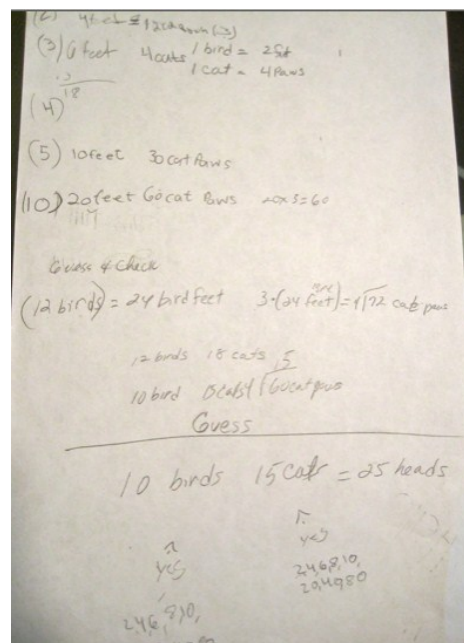 (2) 4 feet = 12 cat paws (3)
(3) 6 feet 4 cats 1 bird = 2 feet
1 cat = 4 paws
18
(4)
(5) 10 feet 30 cat paws
(10) 20 feet 60 cat paws 20x3=60
Guess & Check
(12 birds) = 24 bird feet 3·(24 bird feet) = 4√72 cat paws
12 birds 18 cats 15
10 bird 15 cats 4√60 cat paws
Guess
10 birds 15 cats = 25 heads
yes
yes
2,4,6,8,10,
20,40,80
2,4,6,8,10,